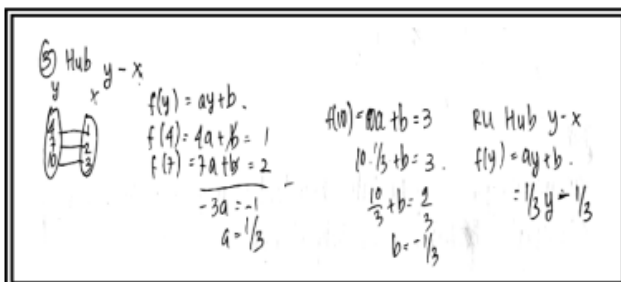 ⑤ Hub y - x
y x
4 1
7 2
10 3
f(y) = ay + b.
f(4) = 4a + b = 1
f(7) = 7a + b = 2
-3a = -1
a = 1/3
f(10) = 10a + b = 3
10 . 1/3 + b = 3.
10/3 + b = 2/3
b = -1/3
RU Hub y - x
f(y) = ay + b.
= 1/3 y - 1/3